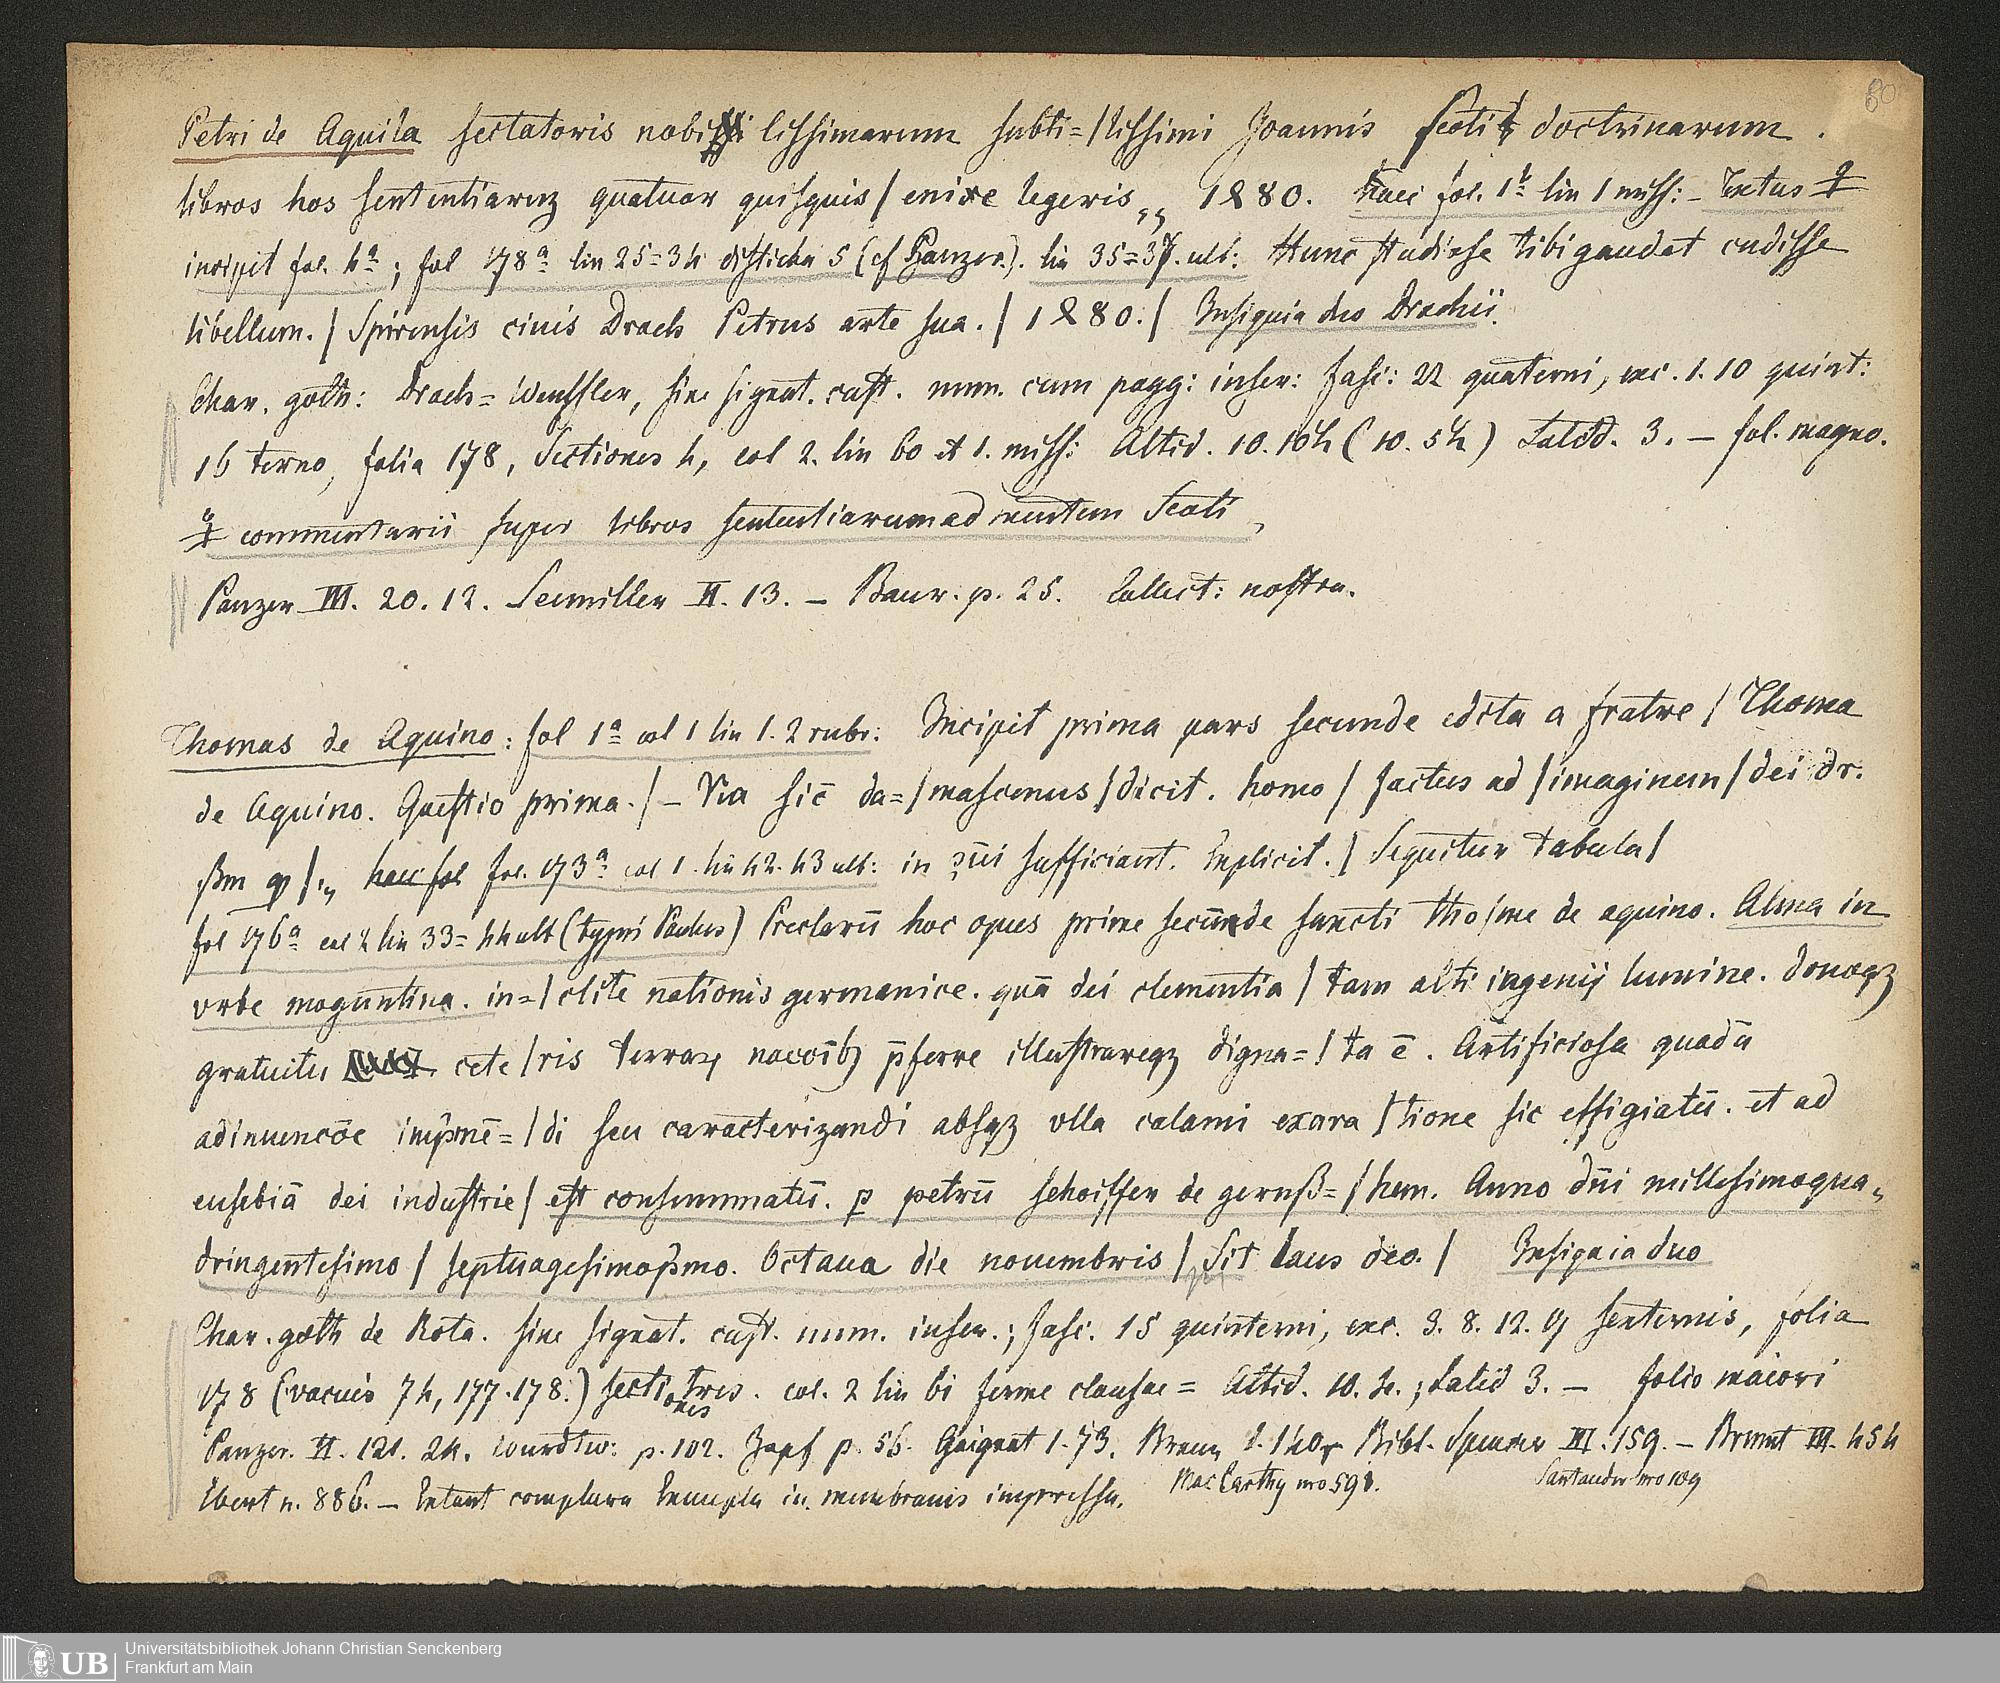 80
Petri de Aquila sectatoris nobili lissimarum subti=/lissimi Joannis Scoti doctrinarum.
libros hos sententiaruz quatuor quisquis / enixe legeris „ 1480. haec fol. 1b lin 1 miss: - Textus
incipit fol. 4a; fol 178a lin 25=34 disticha 5 (cf Panzer.). lin 35=37. ult: Hunc studiose tibi gaudet cudisse
libellum. / Spirensis ciuis Drach Petrus arte sua. / 1480. / Insignia duo Drachii.
Char. goth: Drach= Wenssler, sine signat. cust. num. cum pagg: inser: fasc: 22 quaterni, exc. 1. 10 quint:
16 terno, folia 178, Sectiones 4, col 2. lin 60 et 1. miss: Altid. 10. 104 (10. 54) Latid. 3. — fol. magno.
commentarii super libros sententiarum ad mentem Scoti
Panzer III. 20. 12. Seemiller II. 13. — Baur. p. 25. Collect: nostra.
Thomas de Aquino: fol 1a col 1 lin 1. 2 rubr: Incipit prima pars secunde edita a fratre / Thoma
de Aquino. Questio prima. / — Via sic̄ da=/mascenus / dicit. homo / factus ad / imaginem / dei dr.
ßm / „ haec fol fol. 173a col 1. lin 42. 43 ult: in sufficiant. Explicit. / Sequitur tabula /
fol 176a col 2 lin 33=44 ult (typis Paulus) Preclarū hoc opus prime secūnde sancti tho/me de aquino. Alma in
vrbe moguntina. in=/clite nationis germanice. quā dei clementia / tam alti ingenij lumine. donoqz
gratuitu cete/ris terraꝝ nacoībꝫ p̄ferre illustrareqz digna=/ta ē. Artificiosa quadā
adinuencōe imprīnē=/di seu caracterizandi absqz vlla calami exara/tione sic effigiatū. et ad
eusebiā dei industrie / est consummatū. p petrū schoiffer de gernß=/hem. Anno dn̄i millesimoqua-
dringentesimo / septuagesimopͥmo. Octaua die nouembris / Sit laus deo. / Insignia duo
Char. goth de Rota. sine signat. cust. num. inser.; fasc. 15 quinterni, exc. 3. 8. 12. 17 senternis, folia
178 (vacuis 74, 177.178.) sectiones tres. col. 2 lin 61 ferme clausae = Altid. 10. 4.; Latid 3. — folio maiori
Panzer. II. 121. 24. Würdtw: p. 102. Zapf p. 56. Gaignat 1. 73. Braun 1. 140. Bibl. Spencer III. 159. — Brunet III. 454
Mac Carthy nro 591. Santander nro 109
Ebert n. 886. — Extant complura Exempla in membranis impressa.
UB
Universitätsbibliothek Johann Christian Senckenberg
Frankfurt am Main